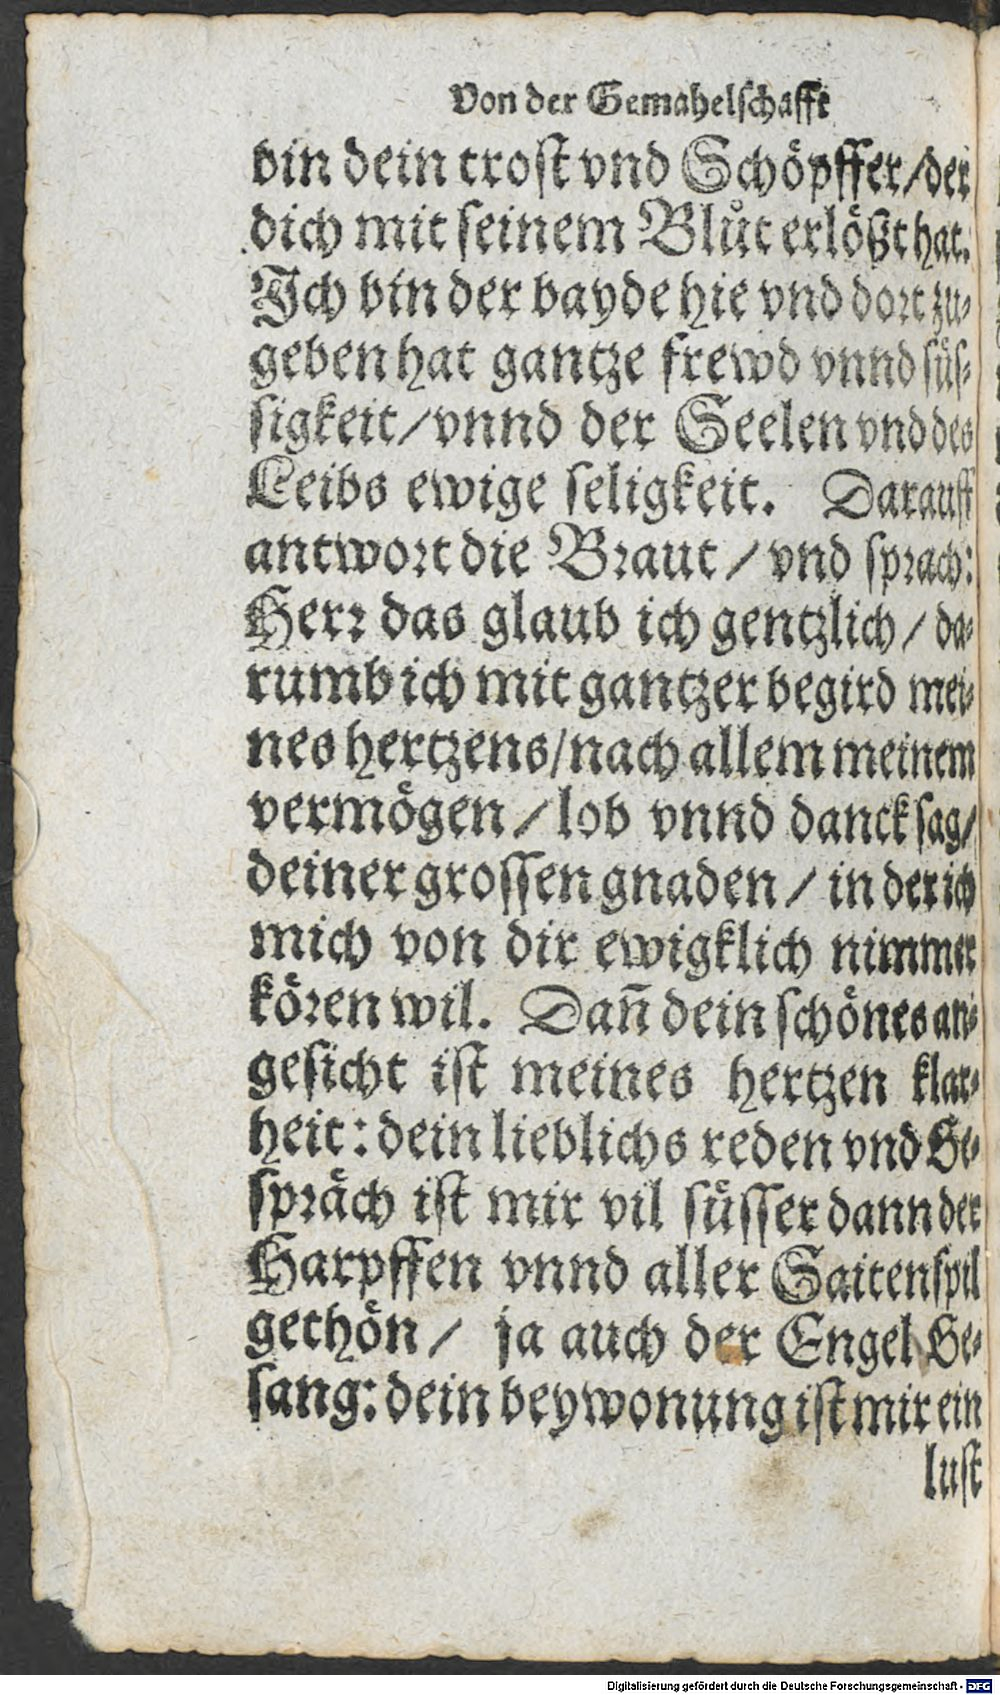 Von der Gemahelschafft
bin dein trost vnd Schöpffer/der
dich mit seinem Blůt erlößt hat.
Ich bin der bayde hie vnd dort zu-
geben hat gantze frewd vnnd süs-
sigkeit/vnnd der Seelen vnd des
Leibs ewige seligkeit. Darauff
antwort die Braut / vnd sprach:
Herr das glaub ich gentzlich / da-
rumb ich mit gantzer begird mei-
nes hertzens/nach allem meinem
vermögen / lob vnnd danck sag/
deiner grossen gnaden / in der ich
mich von dir ewigklich nimmer
kören wil. Dañ dein schönes an-
gesicht ist meines hertzen klar-
heit: dein lieblichs reden vnd Ge-
spräch ist mir vil süsser dann der
Harpffen vnnd aller Saitenspil
gethön / ja auch der Engel Ge-
sang: dein beywonung ist mir ein
lust
Digitalisierung gefördert durch die Deutsche Forschungsgemeinschaft - DFG